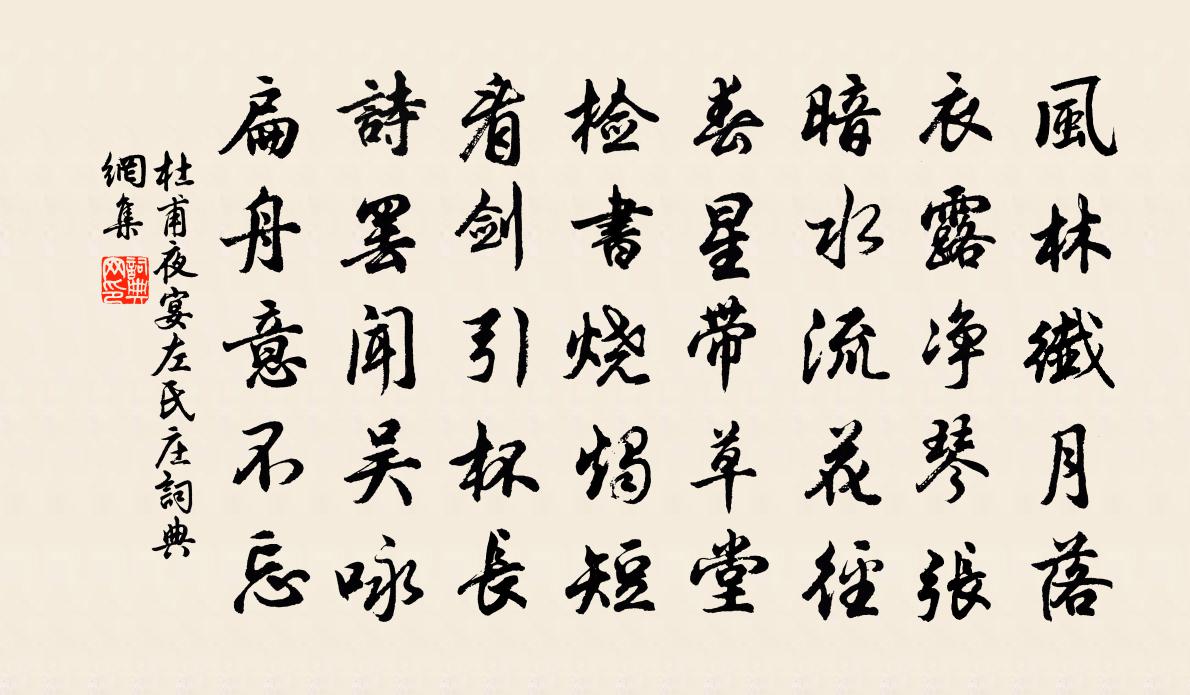 風林纖月落
衣露净琴張
暗水流花徑
春星带草堂
檢書烧燭短
看剑引杯長
詩罢聞吴咏
扁舟意不忘
杜甫夜宴左氏庄詞典
網集
詞典
网印